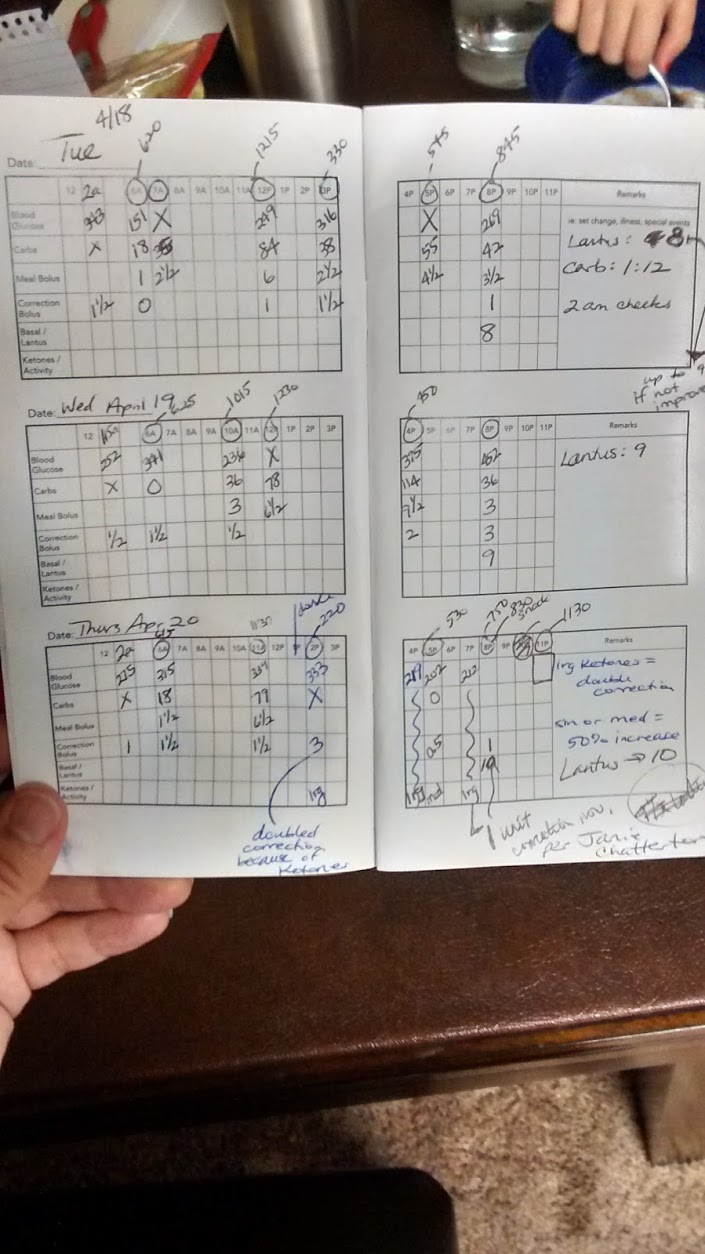 4/18
620
1215
330
Date: Tue
12 2a 6A 7A 8A 9A 10A 11A 12P 1P 2P 3P
Blood Glucose 343 151 X 249 316
Carbs X 18 35 84 38
Meal Bolus 1 2½ 6 2½
Correction Bolus 1½ 0 1 1½
Basal / Lantus
Ketones / Activity
545
845
4P 5P 6P 7P 8P 9P 10P 11P Remarks
X 269 ie: set change, illness, special events
55 42 Lantus: 8
4½ 3½ Carb: 1:12
1 2 am checks
8
up to 9
if not
improve
Date: Wed April 19
625
1015
1230
12 6A 7A 8A 9A 10A 11A 12P 1P 2P 3P
Blood Glucose 252 341 236 X
Carbs X 0 36 78
Meal Bolus 3 6½
Correction Bolus ½ 1½ ½
Basal / Lantus
Ketones / Activity
450
4P 5P 6P 7P 8P 9P 10P 11P Remarks
375 452 Lantus: 9
114 36
9½ 3
2 3
9
Date: Thurs Apr 20
1130
220
12 2a 6A 7A 8A 9A 11A 12P 2P 3P
Blood Glucose 225 315 339 333
Carbs X 18 77 X
Meal Bolus 1½ 6½
Correction Bolus 1 1½ 1½ 3
Basal / Lantus
Ketones / Activity lrg
doubled
correction
because of
ketones
530
750
830
snack
1130
4P 5P 6P 7P 8P 9P 11P Remarks
219 202 212 lrg Ketones =
0 double
correction
sm or med =
0.5 1 50% increase
10 Lantus → 10
lrg med lrg
1 unit
correction now,
per Janie
Chatterton